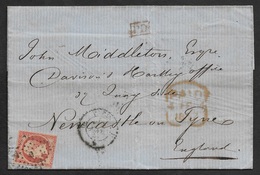 John Middleton, Esqre
Davison's Hartley office
27 Quay Side
Newcastle on Tyne
England
PD